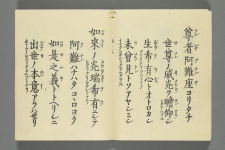 尊者阿難座ヨリタチ
世尊ノ威光ヲ瞻仰シ
生希有心トオトロカシ
未曾見トソアヤシミシ
如來ノ光瑞希有ニシテ
阿難ハナハタコヽロヨク
如是之義トトヘリシニ
出世ノ本意アラハセリ